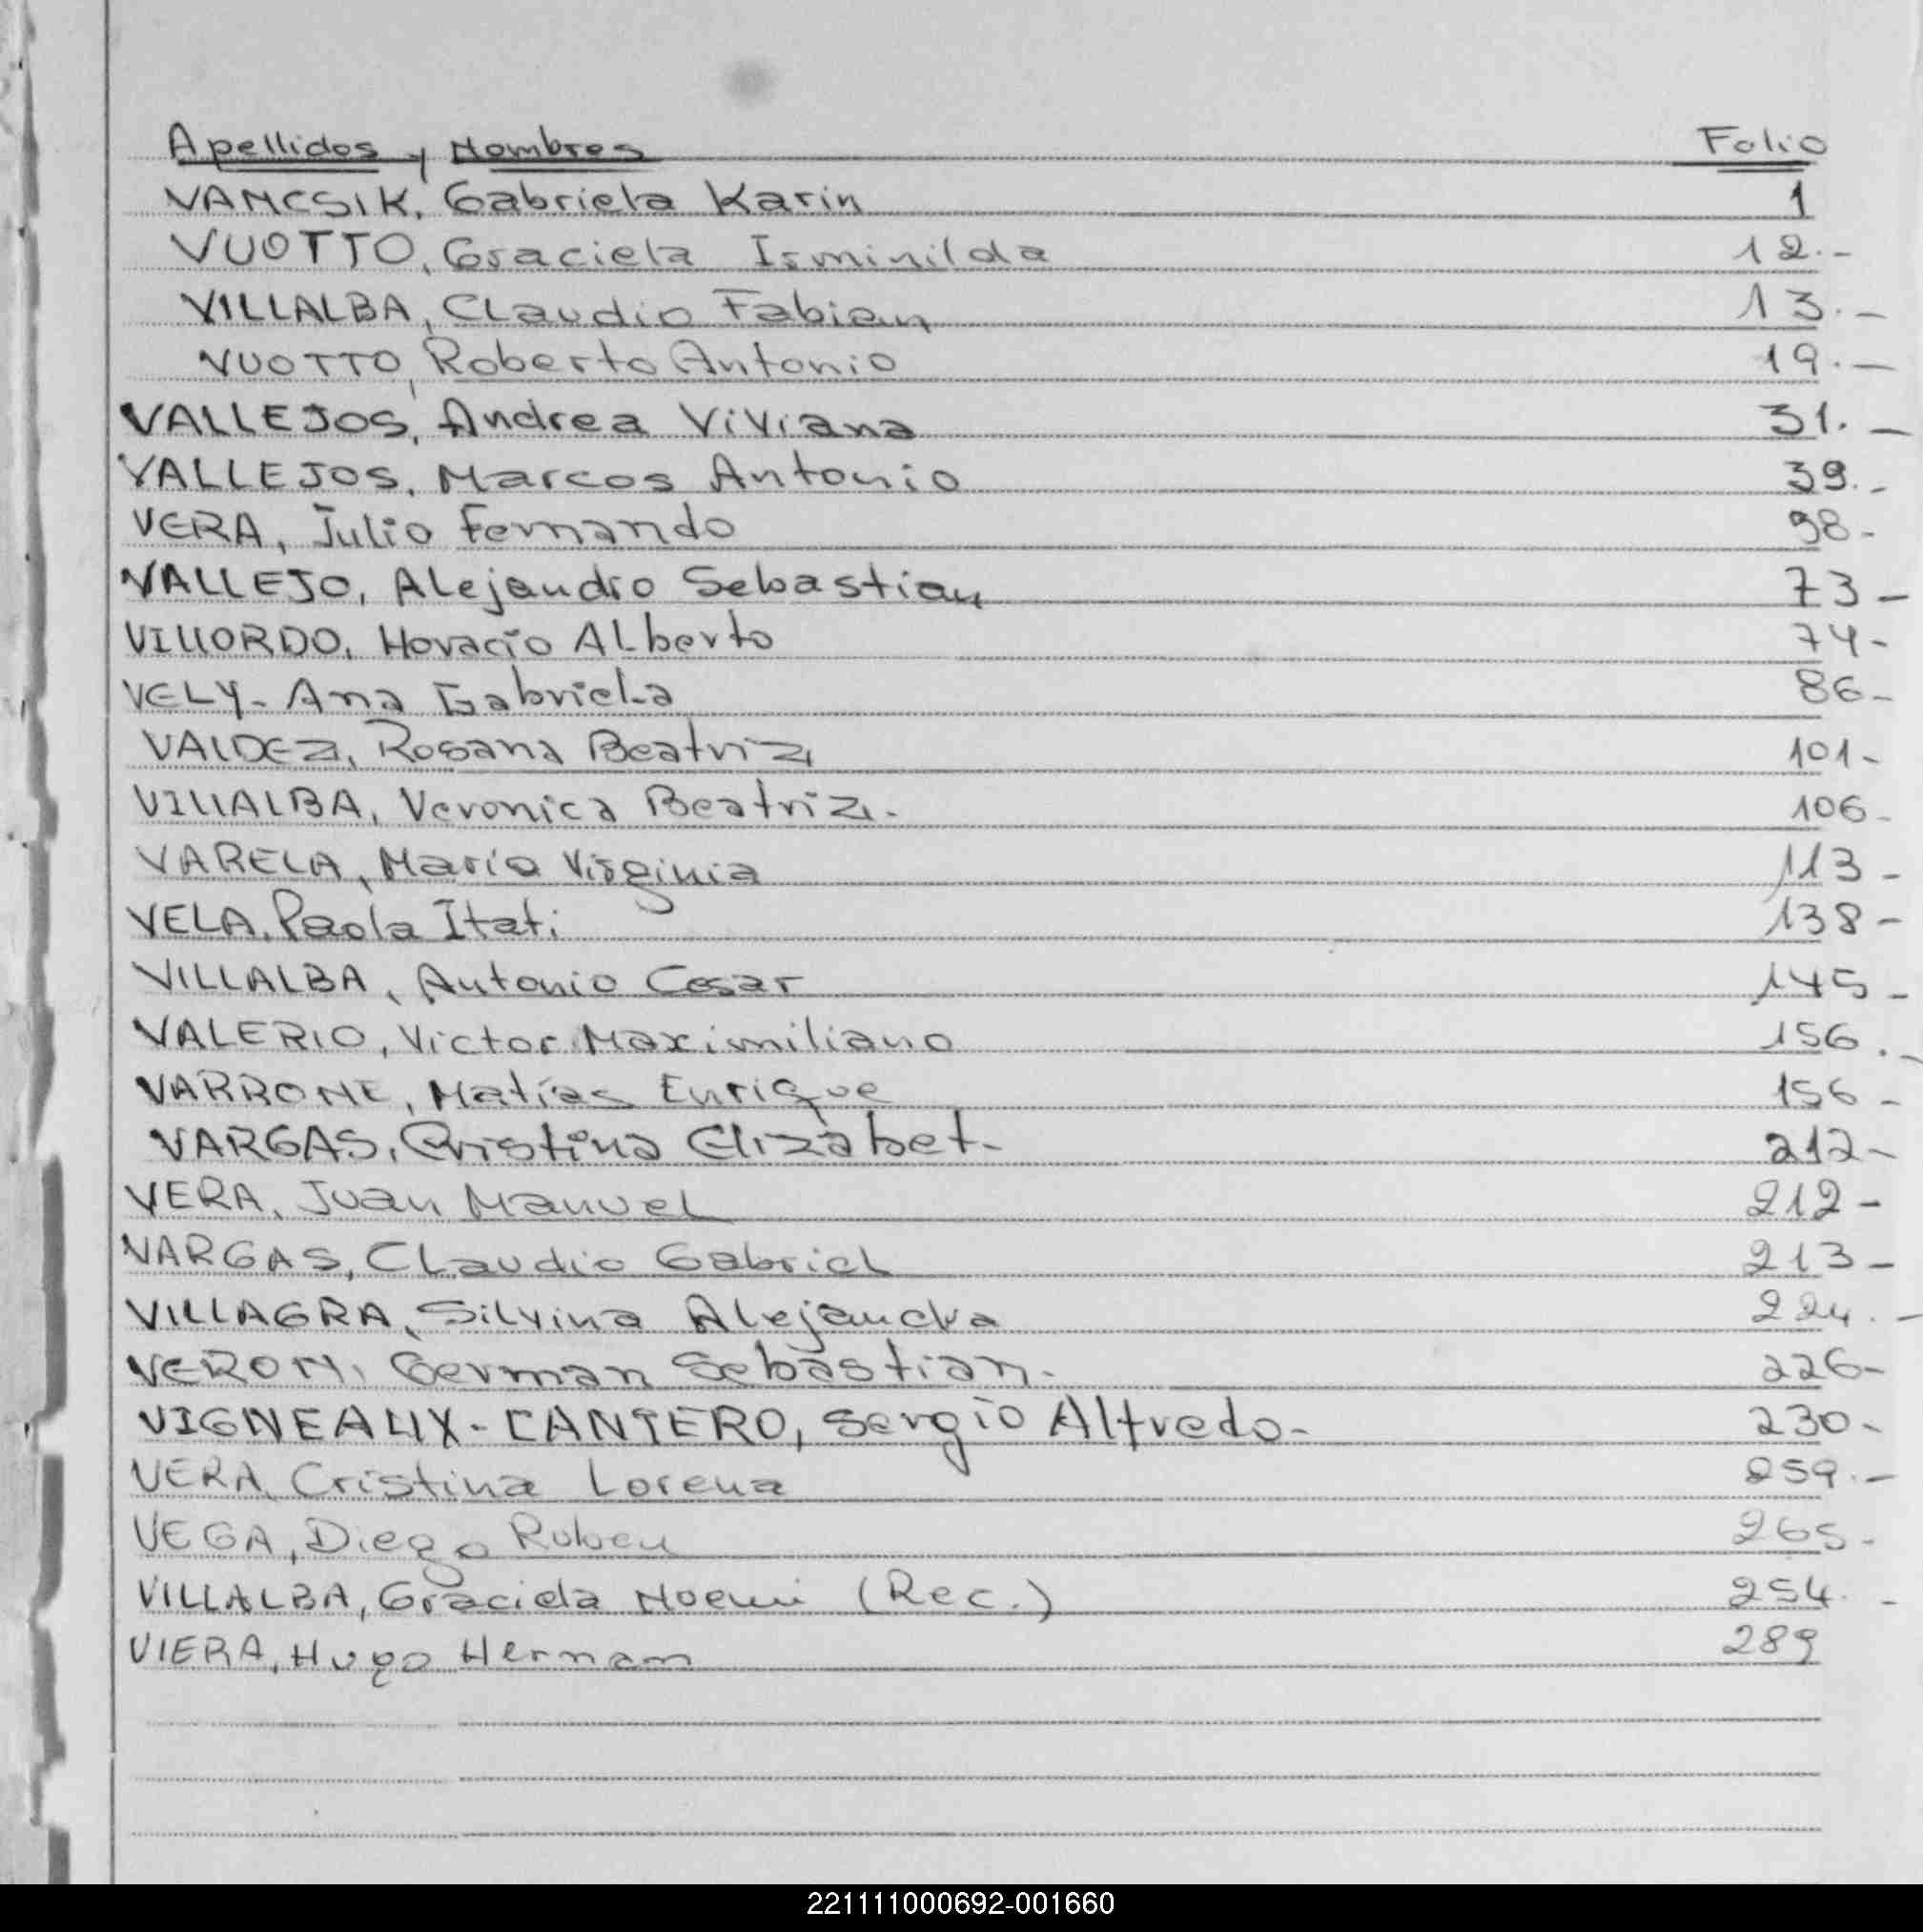 Apellidos y Nombres Folio
VANCSIK, Gabriela Karin 1
VUOTTO, Graciela Isminilda 12.-
VILLALBA, Claudio Fabian 13.-
VUOTTO, Roberto Antonio 19.-
VALLEJOS, Andrea Viviana 31.-
VALLEJOS, Marcos Antonio 39.-
VERA, Julio Fernando 98-
VALLEJO, Alejandro Sebastian 73-
VILLORDO, Horacio Alberto 74-
VELY- Ana Gabriela 86-
VALDEZ, Rosana Beatriz 101-
VILLALBA, Veronica Beatriz.- 106-
VARELA, María Virginia 113-
VELA, Paola Itati 138-
VILLALBA, Antonio Cesar 145-
VALERIO, Victor Maximiliano 156.-
VARRONE, Matías Enrique 156-
VARGAS, Cristina Elizabet- 212-
VERA, Juan Manuel 212-
VARGAS, Claudio Gabriel 213-
VILLAGRA, Silvina Alejandra 224.-
VERON, German Sebastian.- 226-
VIGNEAUX-CANTERO, Sergio Alfredo- 230-
VERA, Cristina Lorena 259.-
VEGA, Diego Ruben 265-
VILLALBA, Graciela Noemi (Rec.) 254.-
VIERA, Hugo Hernam 289
221111000692-001660